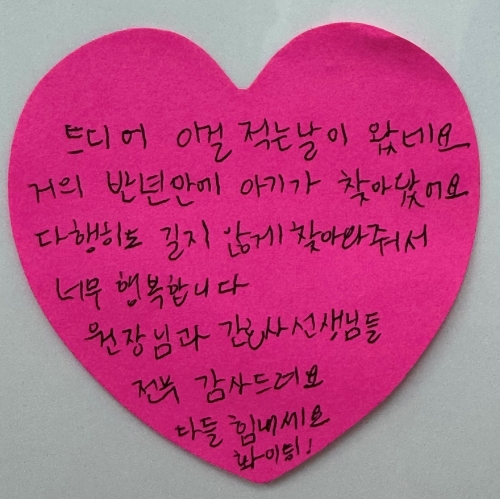 뜨디어 이걸 적는날이 왔네요
거의 반년만에 아기가 찾아왔어요
다행히도 길지 않게 찾아와줘서
너무 행복합니다
원장님과 간호사선생님들
전부 감사드려요
다들 힘내세요
화이팅!